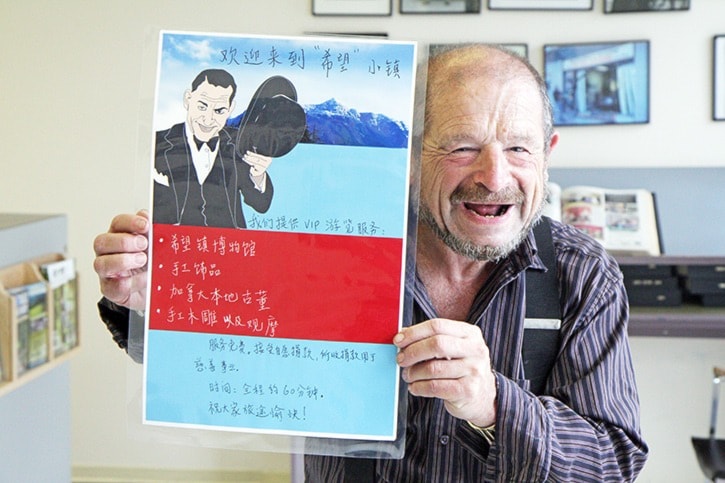 欢迎来到"希望"小镇
我们提供VIP游览服务:
• 希望镇博物馆
• 手工饰品
• 加拿大本地古董
• 手工木雕以及观摩
服务免费。接受自愿捐款,所收捐款用于
慈善事业.
时间:全程约60分钟.
祝大家旅途愉快!